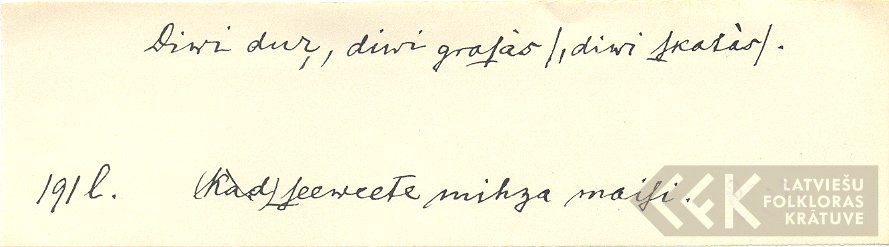 Diwi duŗ, diwi groſàs/, diwi ſkatàs/.
191 l. (Kad) ſeeweete mihza maiſi.
LATVIEŠU
FOLKLORAS
KRĀTUVE